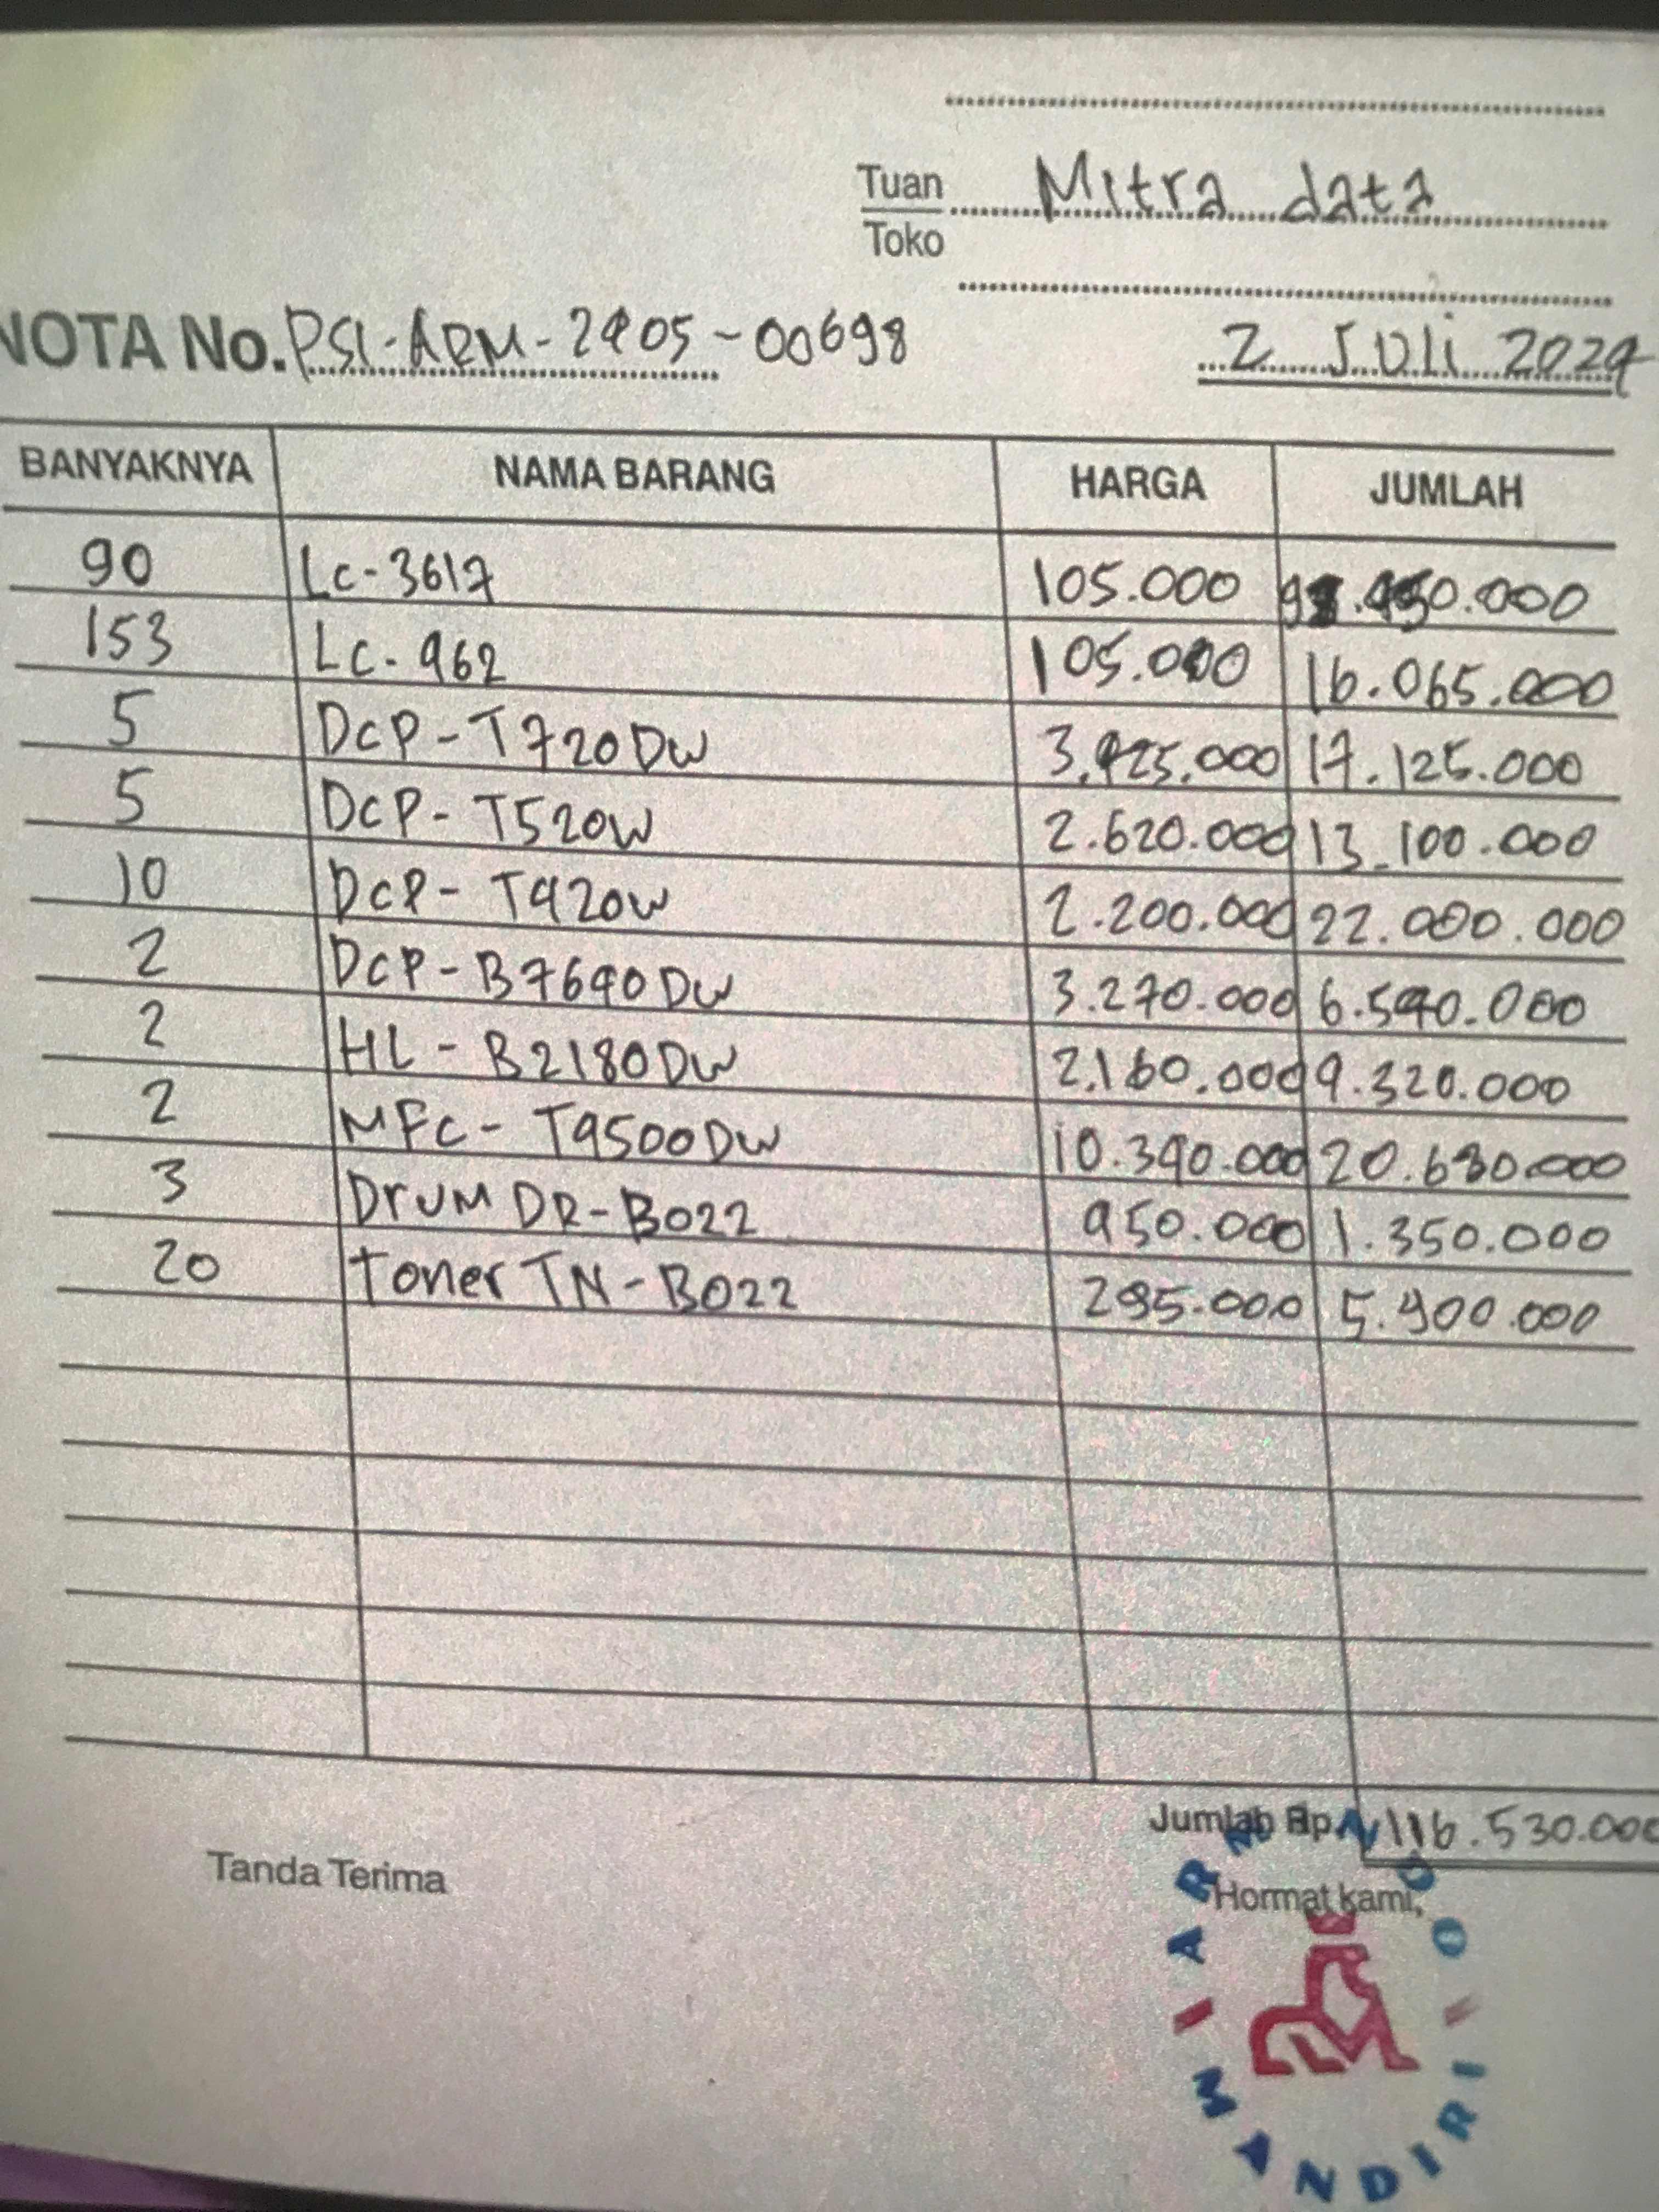 Tuan Mitra data
Toko
NOTA No. PSI-ARM-2405-00698 2 Juli 2024
BANYAKNYA NAMA BARANG HARGA JUMLAH
90 Lc-3617 105.000
153 Lc-462 105.000 16.065.000
5 DCP-T720DW 3.425.000 17.125.000
5 DCP-T520W 2.620.000 13.100.000
10 DCP-T420W 2.200.000 22.000.000
2 DCP-B7640DW 3.270.000 6.540.000
2 HL-B2180DW 2.160.000 4.320.000
2 MFC-T4500DW 10.340.000 20.680.000
3 Drum DR-B022 450.000 1.350.000
20 Toner TN-B022 295.000 5.900.000
Jumlah Rp. 116.530.000
Tanda Terima Hormat kami,
ARMINCO
MANDIRI